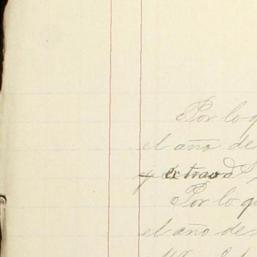 Por lo q
el año de
y extraord
Por lo q
el año de